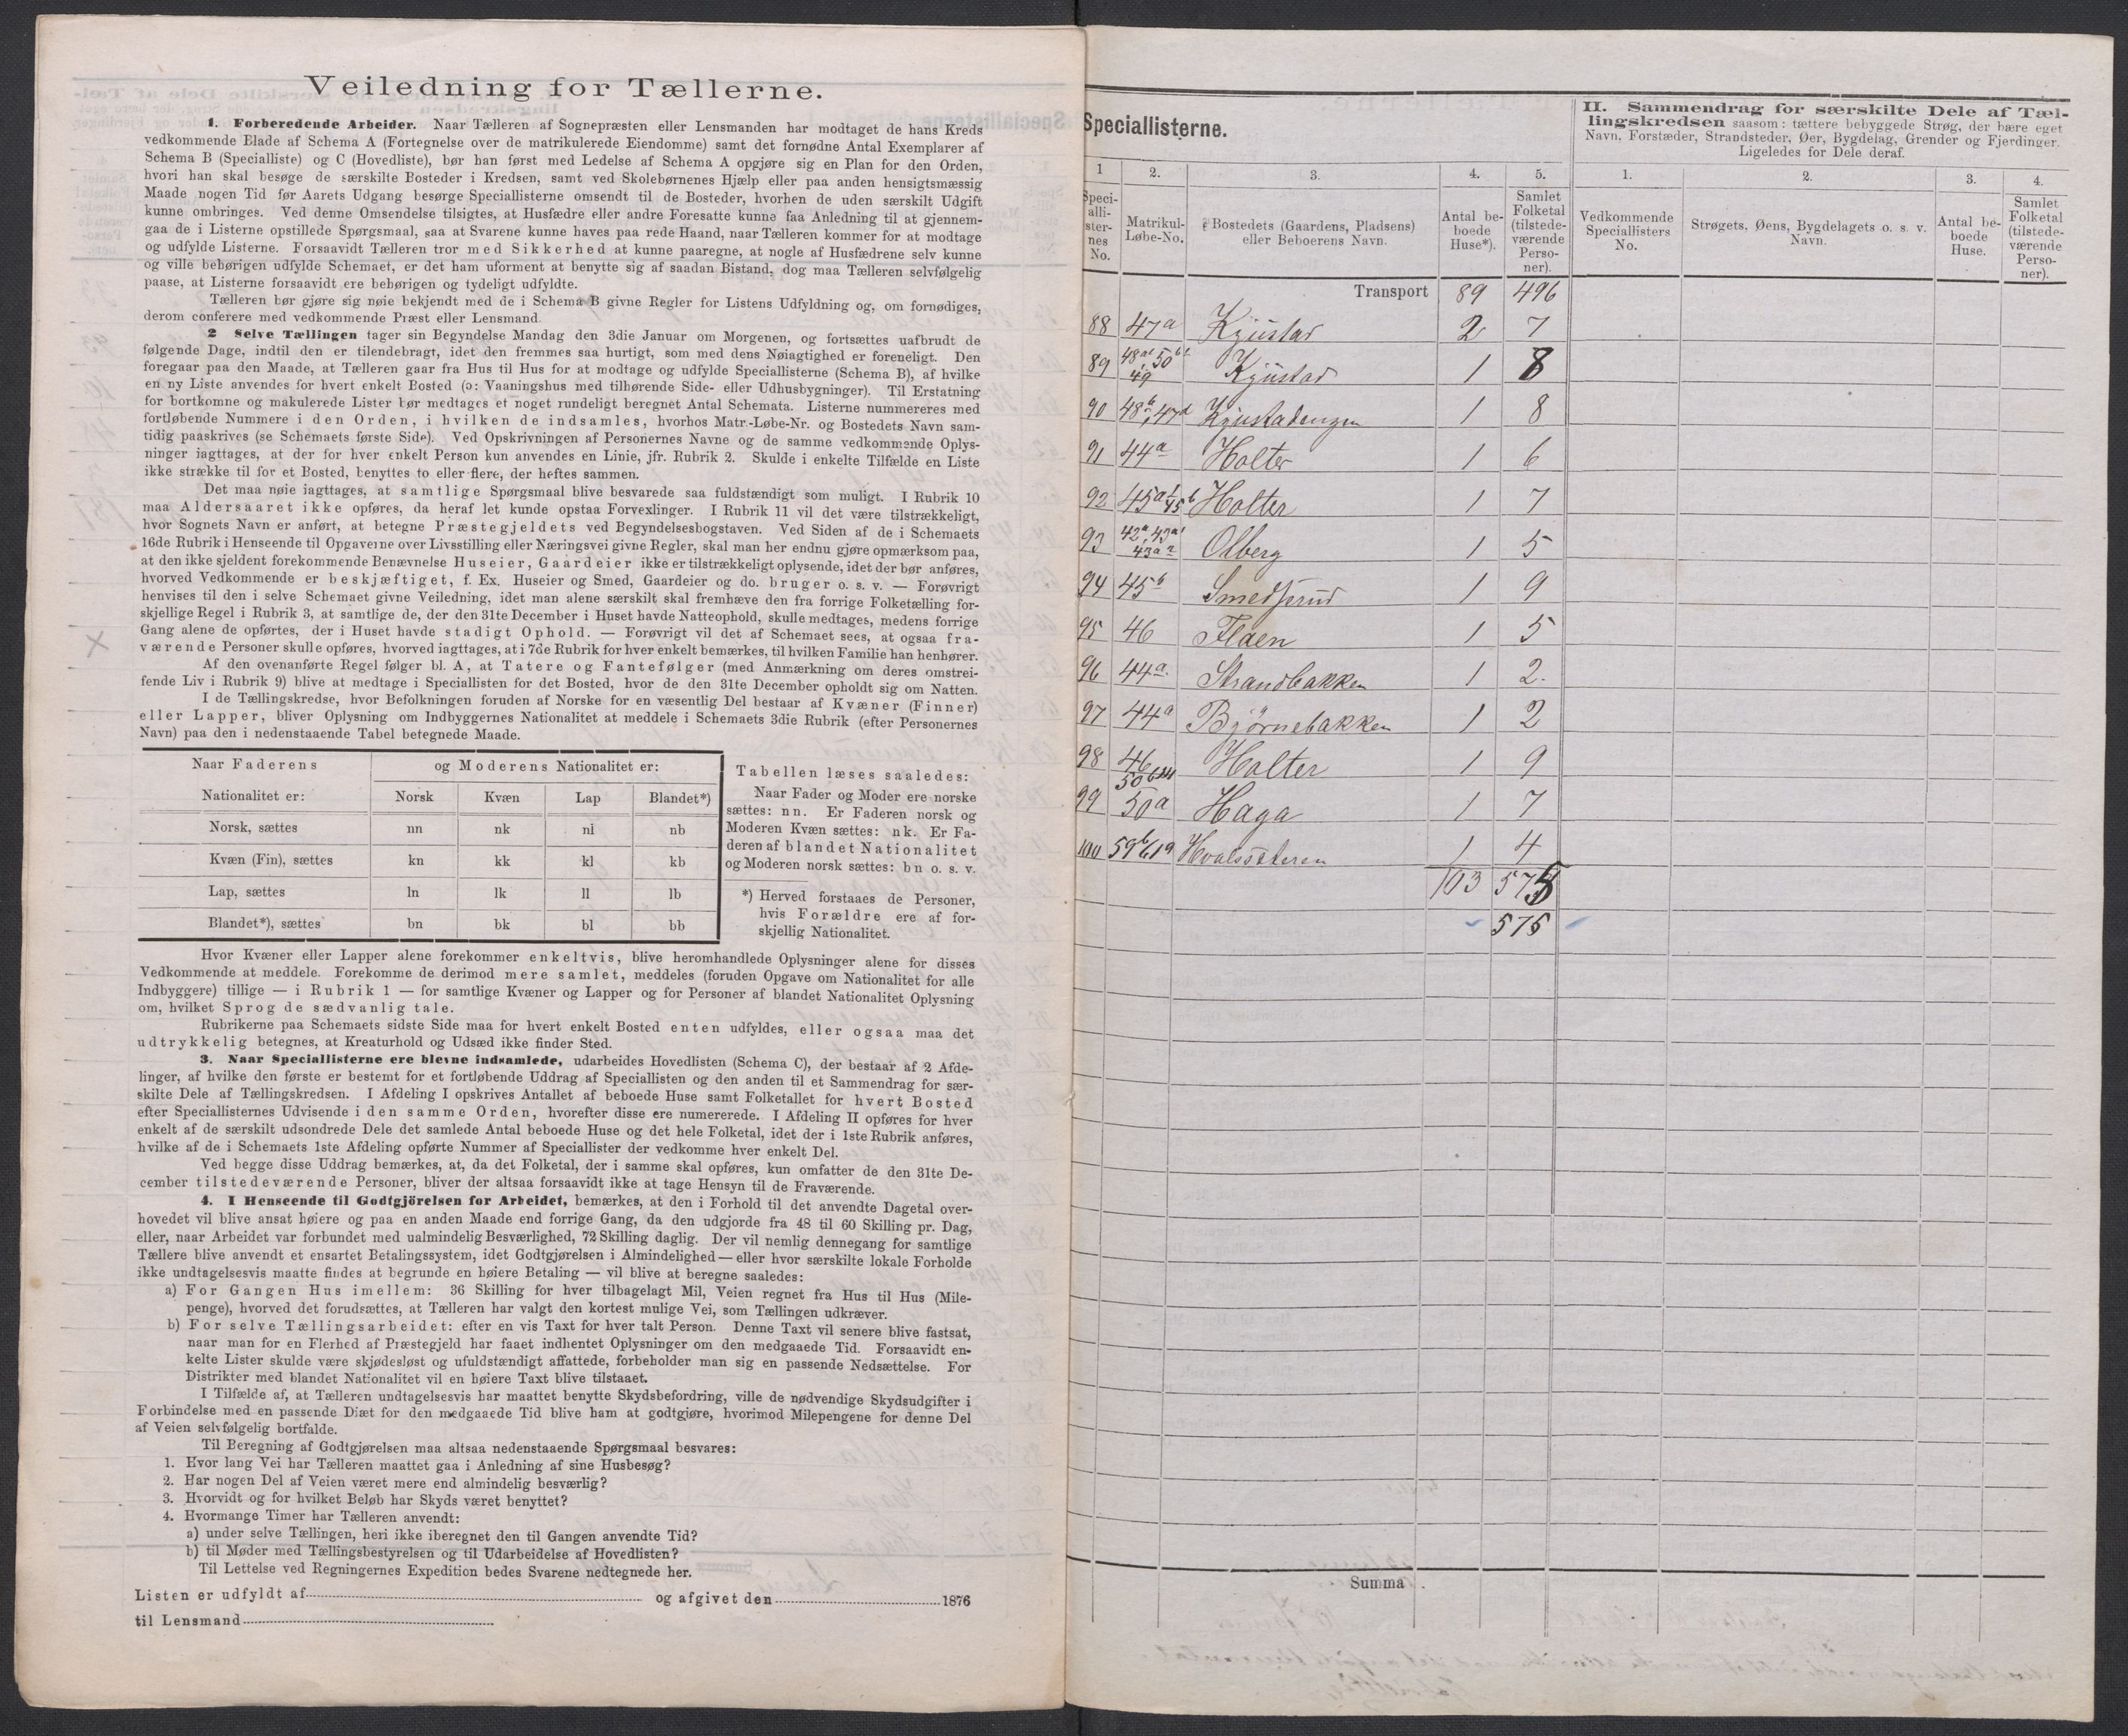 Veiledning for Tællerne.
1. Forberedende Arbeider. Naar Tælleren af Sognepræsten eller Lensmanden har modtaget de hans Kreds
vedkommende Blade af Schema A (Fortegnelse over de matrikulerede Eiendomme) samt det fornødne Antal Exemplarer af
Schema B (Specialliste) og C (Hovedliste), bør han først med Ledelse af Schema A opgjøre sig en Plan for den Orden,
hvori han skal besøge de særskilte Bosteder i Kredsen, samt ved Skolebørnenes Hjælp eller paa anden hensigtsmæssig
Maade nogen Tid før Aarets Udgang besørge Speciallisterne omsendt til de Bosteder, hvorhen de uden særskilt Udgift
kunne ombringes. Ved denne Omsendelse tilsigtes, at Husfædre eller andre Foresatte kunne faa Anledning til at gjennem-
gaa de i Listerne opstillede Spørgsmaal, saa at Svarene kunne haves paa rede Haand, naar Tælleren kommer for at modtage
og udfylde Listerne. Forsaavidt Tælleren tror med Sikkerhed at kunne paaregne, at nogle af Husfædrene selv kunne
og ville behørigen udfylde Schemaet, er det ham uforment at benytte sig af saadan Bistand, dog maa Tælleren selvfølgelig
paase, at Listerne forsaavidt ere behørigen og tydeligt udfyldte.
Tælleren bør gjøre sig nøie bekjendt med de i Schema B givne Regler for Listens Udfyldning og, om fornødiges,
derom conferere med vedkommende Præst eller Lensmand.
2 Selve Tællingen tager sin Begyndelse Mandag den 3die Januar om Morgenen, og fortsættes uafbrudt de
følgende Dage, indtil den er tilendebragt, idet den fremmes saa hurtigt, som med dens Nøiagtighed er foreneligt. Den
foregaar paa den Maade, at Tælleren gaar fra Hus til Hus for at modtage og udfylde Speciallisterne (Schema B), af hvilke
en ny Liste anvendes for hvert enkelt Bosted (ɔ: Vaaningshus med tilhørende Side- eller Udhusbygninger). Til Erstatning
for bortkomne og makulerede Lister bør medtages et noget rundeligt beregnet Antal Schemata. Listerne nummereres med
fortløbende Nummere i den Orden, i hvilken de indsamles, hvorhos Matr.-Løbe-Nr. og Bostedets Navn sam-
tidig paaskrives (se Schemaets første Side). Ved Opskrivningen af Personernes Navne og de samme vedkommende Oplys-
ninger iagttages, at der for hver enkelt Person kun anvendes en Linie, jfr. Rubrik 2. Skulde i enkelte Tilfælde en Liste
ikke strække til for et Bosted, benyttes to eller flere, der heftes sammen.
Det maa nøie iagttages, at samtlige Spørgsmaal blive besvarede saa fuldstændigt som muligt. I Rubrik 10
maa Aldersaaret ikke opføres, da heraf let kunde opstaa Forvexlinger. I Rubrik 11 vil det være tilstrækkeligt,
hvor Sognets Navn er anført, at betegne Præstegjeldets ved Begyndelsesbogstaven. Ved Siden af de i Schemaets
16de Rubrik i Henseende til Opgaverne over Livsstilling eller Næringsvei givne Regler, skal man her endnu gjøre opmærksom paa,
at den ikke sjeldent forekommende Benævnelse Huseier, Gaardeier ikke er tilstrækkeligt oplysende, idet der bør anføres,
hvorved Vedkommende er beskjæftiget, f. Ex. Huseier og Smed, Gaardeier og do. bruger o. s. v. — Forøvrigt
henvises til den i selve Schemaet givne Veiledning, idet man alene særskilt skal fremhæve den fra forrige Folketælling for-
skjellige Regel i Rubrik 3, at samtlige de, der den 31te December i Huset havde Natteophold, skulle medtages, medens forrige
Gang alene de opførtes, der i Huset havde stadigt Ophold. — Forøvrigt vil det af Schemaet sees, at ogsaa fra-
værende Personer skulle opføres, hvorved iagttages, at i 7de Rubrik for hver enkelt bemærkes, til hvilken Familie han henhører.
Af den ovenanførte Regel følger bl. A, at Tatere og Fantefølger (med Anmærkning om deres omstrei-
fende Liv i Rubrik 9) blive at medtage i Speciallisten for det Bosted, hvor de den 31te December opholdt sig om Natten.
I de Tællingskredse, hvor Befolkningen foruden af Norske for en væsentlig Del bestaar af Kvæner (Finner)
eller Lapper, bliver Oplysning om Indbyggernes Nationalitet at meddele i Schemaets 3die Rubrik (efter Personernes
Navn) paa den i nedenstaaende Tabel betegnede Maade.
Naar Faderens og Moderens Nationalitet er:
Nationalitet er: Norsk Kvæn Lap Blandet*)
Norsk, sættes nn nk nl nb
Kvæn (Fin), sættes kn kk kl kb
Lap, sættes ln lk ll lb
Blandet*), sættes bn bk bl bb
Tabellen læses saaledes:
Naar Fader og Moder ere norske
sættes: nn. Er Faderen norsk og
Moderen Kvæn sættes: nk. Er Fa-
deren af blandet Nationalitet
og Moderen norsk sættes: bn o. s. v.
*) Herved forstaaes de Personer,
hvis Forældre ere af for-
skjellig Nationalitet.
Hvor Kvæner eller Lapper alene forekommer enkeltvis, blive heromhandlede Oplysninger alene for disses
Vedkommende at meddele. Forekomme de derimod mere samlet, meddeles (foruden Opgave om Nationalitet for alle
Indbyggere) tillige — i Rubrik 1 — for samtlige Kvæner og Lapper og for Personer af blandet Nationalitet Oplysning
om, hvilket Sprog de sædvanlig tale.
Rubrikerne paa Schemaets sidste Side maa for hvert enkelt Bosted enten udfyldes, eller ogsaa maa det
udtrykkelig betegnes, at Kreaturhold og Udsæd ikke finder Sted.
3. Naar Speciallisterne ere blevne indsamlede, udarbeides Hovedlisten (Schema C), der bestaar af 2 Afde-
linger, af hvilke den første er bestemt for et fortløbende Uddrag af Speciallisten og den anden til et Sammendrag for sær-
skilte Dele af Tællingskredsen. I Afdeling I opskrives Antallet af beboede Huse samt Folketallet for hvert Bosted
efter Speciallisternes Udvisende i den samme Orden, hvorefter disse ere numererede. I Afdeling II opføres for hver
enkelt af de særskilt udsondrede Dele det samlede Antal beboede Huse og det hele Folketal, idet der i 1ste Rubrik anføres,
hvilke af de i Schemaets 1ste Afdeling opførte Nummer af Speciallister der vedkomme hver enkelt Del.
Ved begge disse Uddrag bemærkes, at, da det Folketal, der i samme skal opføres, kun omfatter de den 31te De-
cember tilstedeværende Personer, bliver der altsaa forsaavidt ikke at tage Hensyn til de Fraværende.
4. I Henseende til Godtgjörelsen for Arbeidet, bemærkes, at den i Forhold til det anvendte Dagetal over-
hovedet vil blive ansat høiere og paa en anden Maade end forrige Gang, da den udgjorde fra 48 til 60 Skilling pr. Dag,
eller, naar Arbeidet var forbundet med ualmindelig Besværlighed, 72 Skilling daglig. Der vil nemlig dennegang for samtlige
Tællere blive anvendt et ensartet Betalingssystem, idet Godtgjørelsen i Almindelighed — eller hvor særskilte lokale Forholde
ikke undtagelsesvis maatte findes at begrunde en høiere Betaling — vil blive at beregne saaledes:
a) For Gangen Hus imellem: 36 Skilling for hver tilbagelagt Mil, Veien regnet fra Hus til Hus (Mile-
penge), hvorved det forudsættes, at Tælleren har valgt den kortest mulige Vei, som Tællingen udkræver.
b) For selve Tællingsarbeidet: efter en vis Taxt for hver talt Person. Denne Taxt vil senere blive fastsat,
naar man for en Flerhed af Præstegjeld har faaet indhentet Oplysninger om den medgaaede Tid. Forsaavidt en-
kelte Lister skulde være skjødesløst og ufuldstændigt affattede, forbeholder man sig en passende Nedsættelse. For
Distrikter med blandet Nationalitet vil en høiere Taxt blive tilstaaet.
I Tilfælde af, at Tælleren undtagelsesvis har maattet benytte Skydsbefordring, ville de nødvendige Skydsudgifter i
Forbindelse med en passende Diæt for den medgaaede Tid blive ham at godtgjøre, hvorimod Milepengene for denne Del
af Veien selvfølgelig bortfalde.
Til Beregning af Godtgjørelsen maa altsaa nedenstaaende Spørgsmaal besvares:
1. Hvor lang Vei har Tælleren maattet gaa i Anledning af sine Husbesøg?
2. Har nogen Del af Veien været mere end almindelig besværlig?
3. Hvorvidt og for hvilket Beløb har Skyds været benyttet?
4. Hvormange Timer har Tælleren anvendt:
a) under selve Tællingen, heri ikke iberegnet den til Gangen anvendte Tid?
b) til Møder med Tællingsbestyrelsen og til Udarbeidelse af Hovedlisten?
Til Lettelse ved Regningernes Expedition bedes Svarene nedtegnede her.
Listen er udfyldt af og afgivet den 1876
til Lensmand
Speciallisterne.
1 2. 3. 4. 5.
Speci-
alli-
ster-
nes
No.
Matrikul-
Løbe-No.
Bostedets (Gaardens, Pladsens)
eller Beboerens Navn.
Antal be-
boede
Huse*).
Samlet
Folketal
(tilstede-
værende
Perso-
ner).
II. Sammendrag for særskilte Dele af Tæl-
lingskredsen saasom: tættere bebyggede Strøg, der bære eget
Navn, Forstæder, Strandsteder, Øer, Bygdelag, Grender og Fjerdinger.
Ligeledes for Dele deraf.
1. 2. 3. 4.
Vedkommende
Speciallisters
No.
Strøgets, Øens, Bygdelagets o. s. v.
Navn.
Antal be-
boede
Huse.
Samlet
Folketal
(tilstede-
værende
Perso-
ner).
Transport 89 496
88 47a Kjustad 2 7
89 48a1, 50b1 49 Kjustad 1 8
90 48b, 47d Kjustadengen 1 8
91 44a Holter 1 6
92 45a 45b Holter 1 7
93 42a, 43a1 43a2 Olberg 1 5
94 45b Smedsrud 1 9
95 46 Flaen 1 5
96 44a Strandbakken 1 2
97 44a Björnebakken 1 2
98 46 Holter 1 9
99 50a Haga 1 7
100 59b 61a Hvalssæteren 1 4
103 575
575
Summa